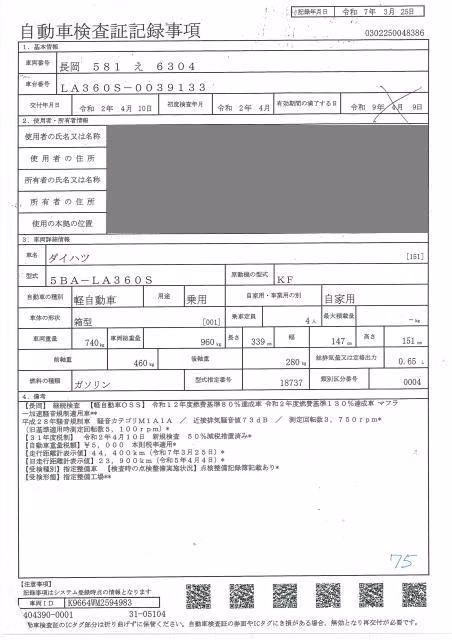 記録年月日 令和 7年 3月 25日
自動車検査証記録事項
0302250048386
1. 基本情報
車両番号 長岡 581 え 6304
車台番号 LA360S-0039133
交付年月日 令和 2年 4月 10日 初度検査年月 令和 2年 4月 有効期間の満了する日 令和 9年 4月 9日
2. 使用者・所有者情報
使用者の氏名又は名称
使用者の住所
所有者の氏名又は名称
所有者の住所
使用の本拠の位置
3. 車両詳細情報
車名 ダイハツ [151]
型式 5BA-LA360S 原動機の型式 KF
自動車の種別 軽自動車 用途 乗用 自家用・事業用の別 自家用
車体の形状 箱型 [001] 乗車定員 4人 最大積載量 -kg
車両重量 740kg 車両総重量 960kg 長さ 339cm 幅 147cm 高さ 151cm
前軸重 460kg 後軸重 280kg 総排気量又は定格出力 0.65 L
燃料の種類 ガソリン 型式指定番号 18737 類別区分番号 0004
4. 備考
[長岡] 継続検査 【軽自動車OSS】 令和12年度燃費基準80%達成車 令和2年度燃費基準130%達成車 マフラ
ー加速騒音規制適用車**
平成28年騒音規制車 騒音カテゴリM1A1A / 近接排気騒音値73dB / 測定回転数3,750rpm*
(旧基準適用時測定回転数5,100rpm)*
[31年度税制] 令和2年4月10日 新規検査 50%減税措置済み*
[自動車重量税額]¥5,000 本則税率適用*
[走行距離計表示値]44,400km(令和7年3月25日)*
[旧走行距離計表示値]23,900km(令和5年4月4日)*
[受検種別]指定整備車 【検査時の点検整備実施状況】点検整備記録簿記載あり*
[受検形態]指定整備工場**
75
【注意事項】
記録事項はシステム登録時点の情報となります
車両ID K9664WM2594983
404390-0001 31-05104
自動車検査証のICタグ部分は折り曲げずに保管ください。自動車検査証の券面やICタグにき損がある場合、無効となり再交付が必要です。